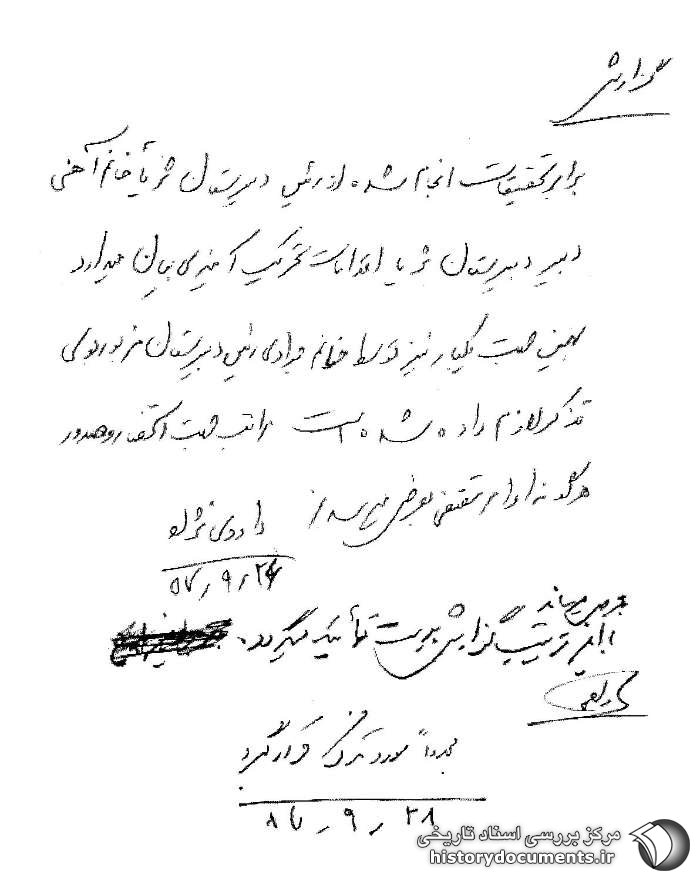 گزارش
برابر تحقیقات انجام شده از رئیس دبیرستان ثریا خانم آهنی
دبیر دبیرستان ثریا اقدامات تحریک آمیزی بیان میدارد
بهمین جهت یکبار نیز توسط خانم مرادی رئیس دبیرستان مزبور بوی
تذکر لازم داده شده است مراتب جهت استحضار و صدور
هرگونه اوامر مقتضی بعرض میرسد
۵۷/۹/۲۴
بعرض میرساند
باین ترتیب گزارش بدست تأیید میگردد.
مجدداً مورد قرار گیرد
۵۷/۹/۲۸
مرکز بررسی اسناد تاریخی
historydocuments.ir